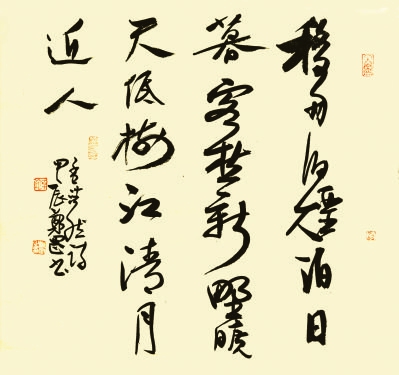 移舟泊煙日
暮客愁新野曠
天低樹江清月
近人
孟浩然詩
甲辰書